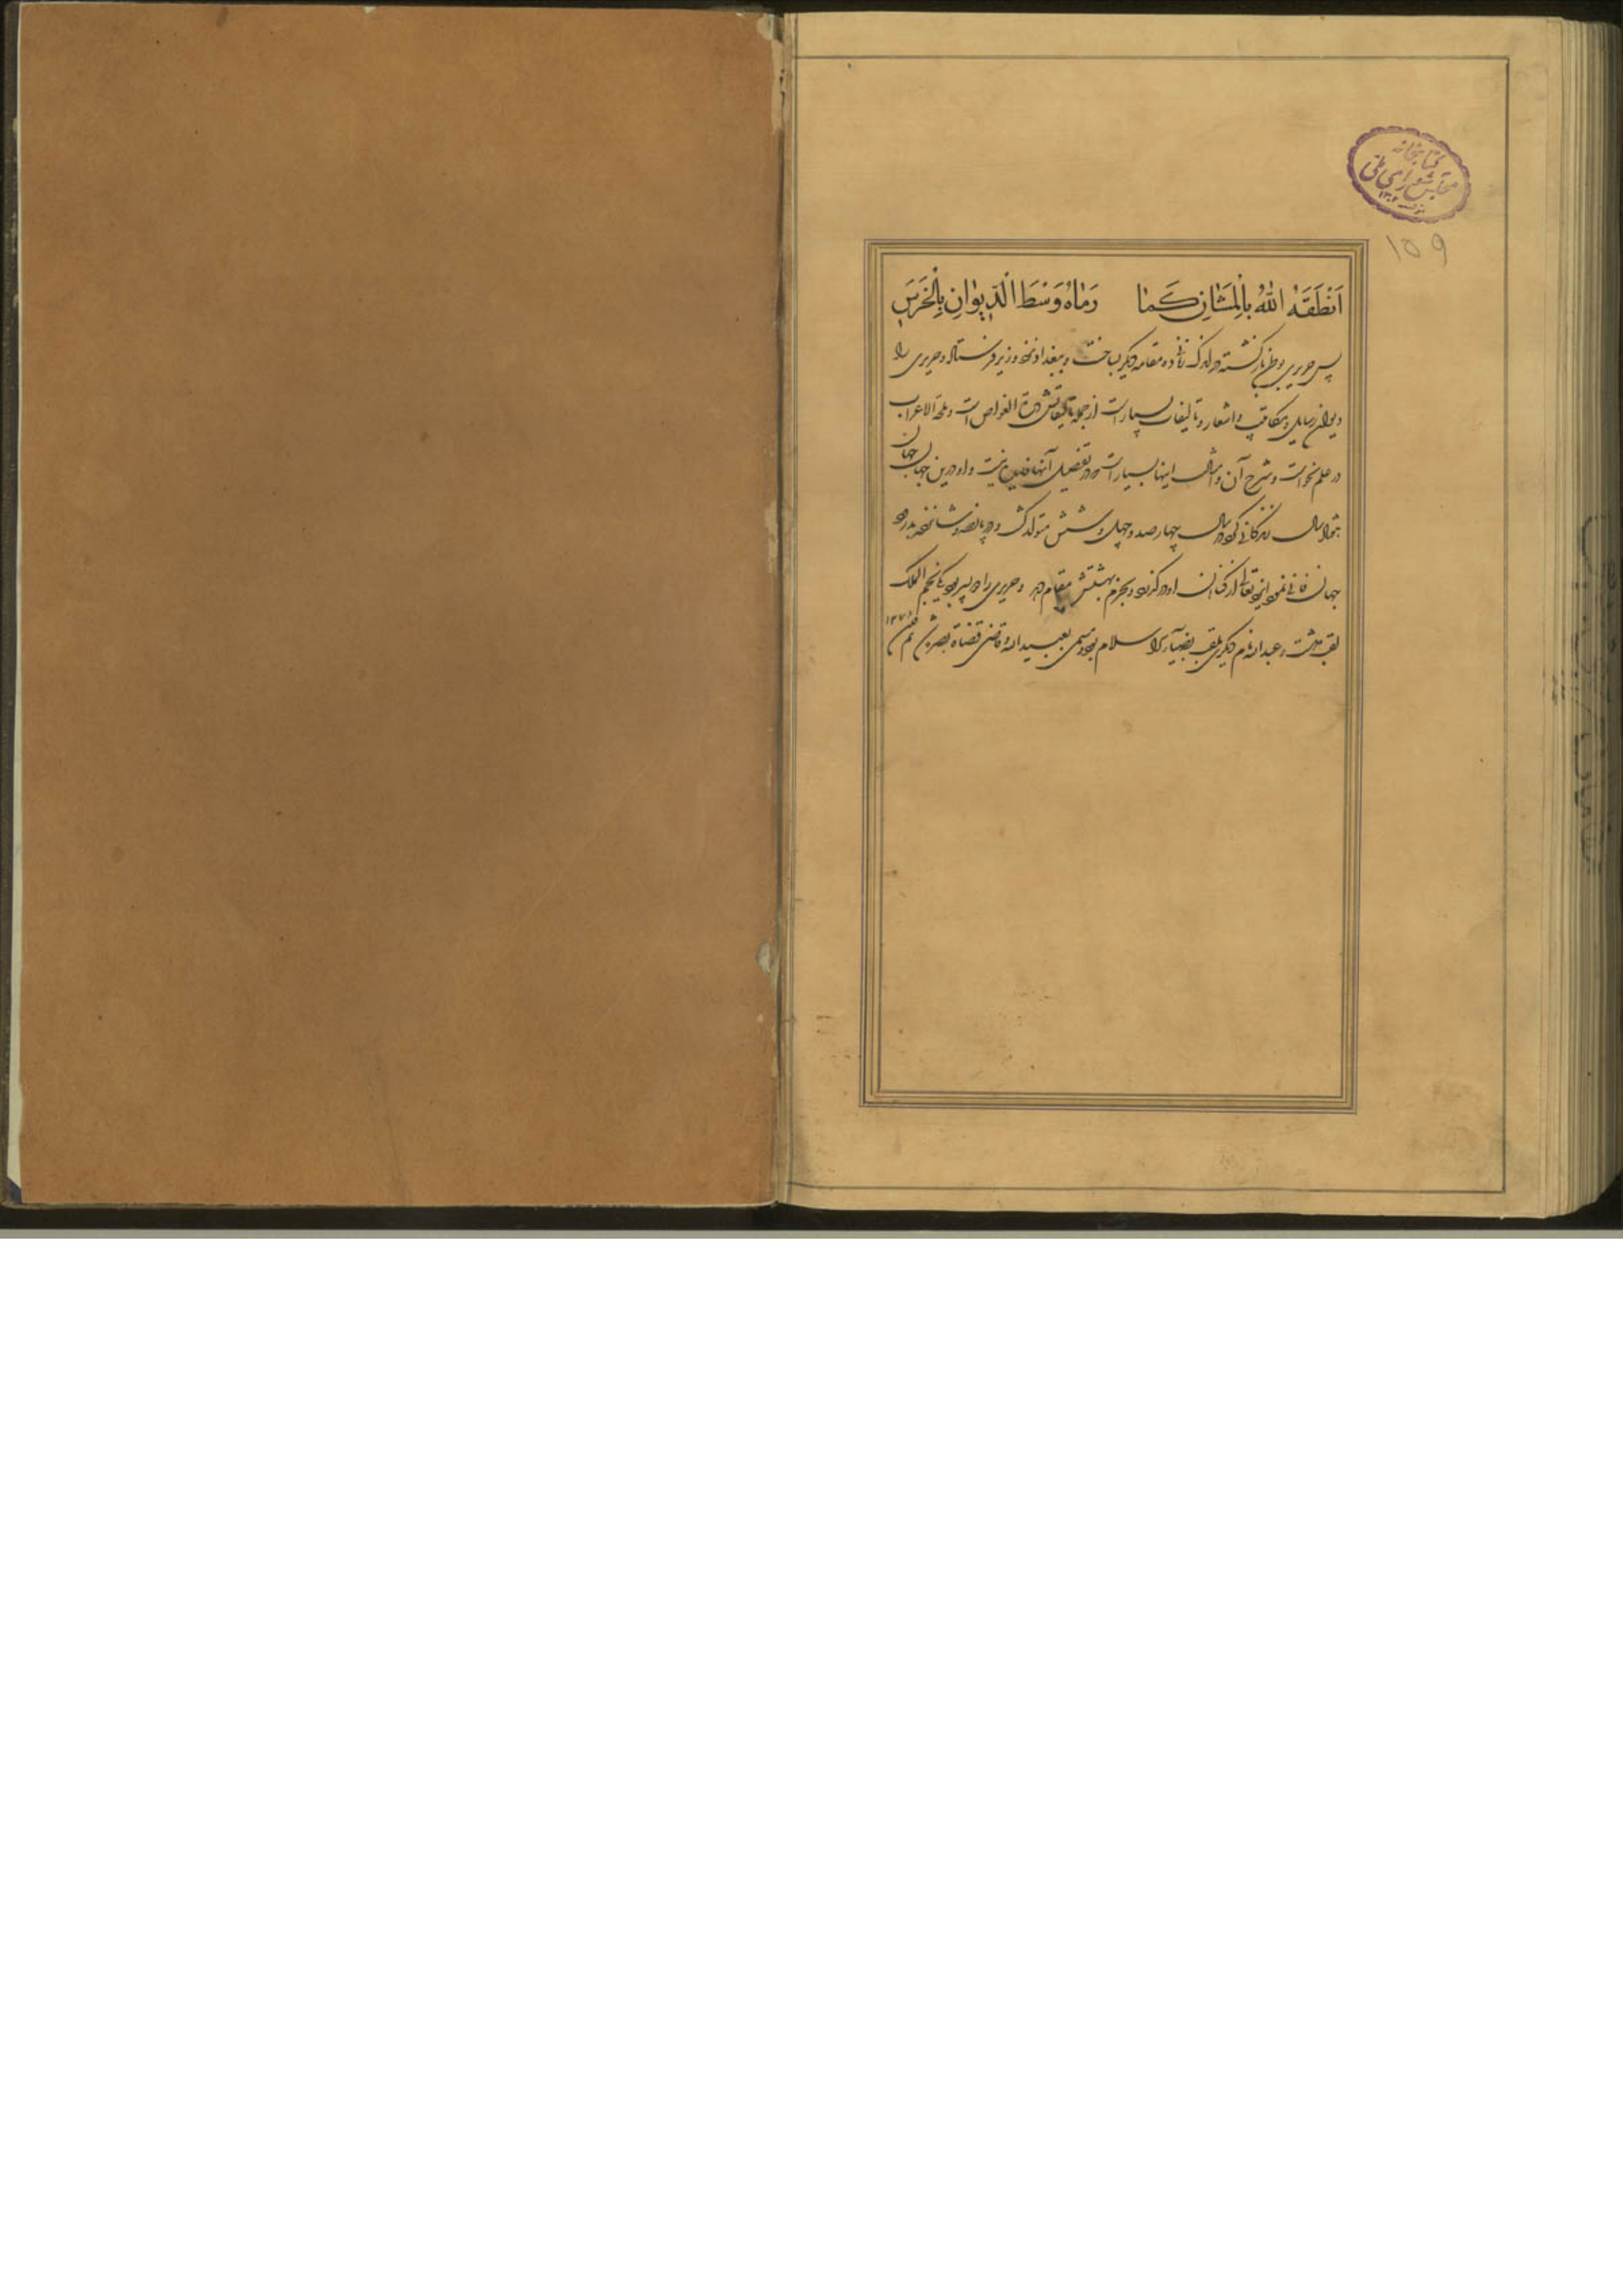 کتابخانه
مجلس شورای ملی
۱۳۰۲
۱۵۹
اَنْطَقَهُ اللّٰهُ بِالْمَشَانِ كَمَا رَمَاهُ وَسَطَ الدِّيوَانِ بِالْخَرَسِ
پس حریری بوطن بازگشته در اندک زمانی ده مقامه دیگر بساخت و ببغداد نزد وزیر فرستاد و حریری را
دیوان رسایل و مکاتیب و اشعار و تالیفات بسیار است از جمله تالیفاتش درة الغواص است و ملحة الاعراب
در علم نحو است و شرح آن و امثال اینها بسیار است و در تفصیل آنها نیست و او درین جهان
سال زندگانی کرد در سال چهارصد و چهل و شش متولد گشت و در پانصد و شانزده بدرود
جهان فانی نمود ایزد تعالی از گناهان او درگذرد و بخرم بهشتش مقام دهد و حریری را دو پسر بود یکی نجم الملک
لقب داشت و عبد الله نام دیگری ملقب بضیاء الاسلام بود مسمی بعبید الله و قاضی قضاة بصره